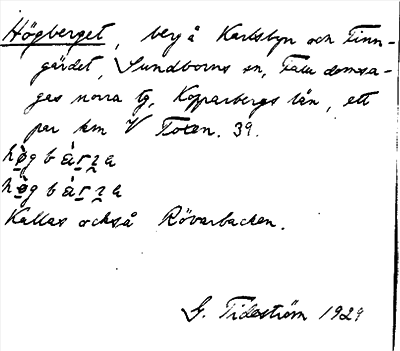 Högberget, berg å Karlsbyn och Finn-
gärdet, Sundborns sn, Falu domsa-
gas norra tg, Kopparbergs län, ett
par km V Toten. 39.
hò̤g b á r̤ z̤ a
hò̤g b à r̤ z̤ a
Kallas också Rövarbacken.
G. Tideström 1929